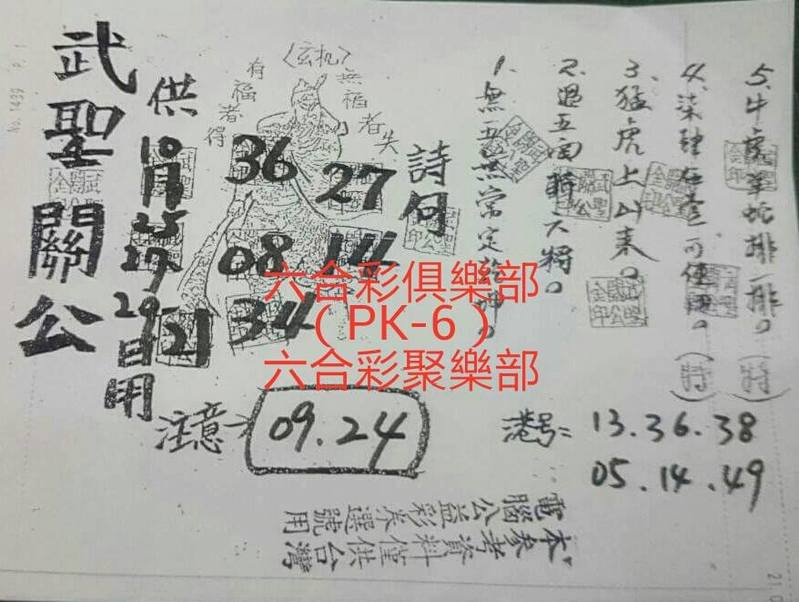 武聖關公
供
10月25
27
29日用
〈玄机〉
有福者得
無福者失
36
27
08
14
34
21
詩句
1、無五無常定乾坤。
2、過五四轉六將。
3、猛虎上山來。
4、柒肆伍壹可使用。（特）
5、牛虎羊蛇排排。（特）
六合彩俱樂部
（PK-6）
六合彩聚樂部
注意→
09.24
港号=
13.36.38
05.14.49
本參考資料僅供台灣
電腦公益彩券選號用
No. 1439 P. 1